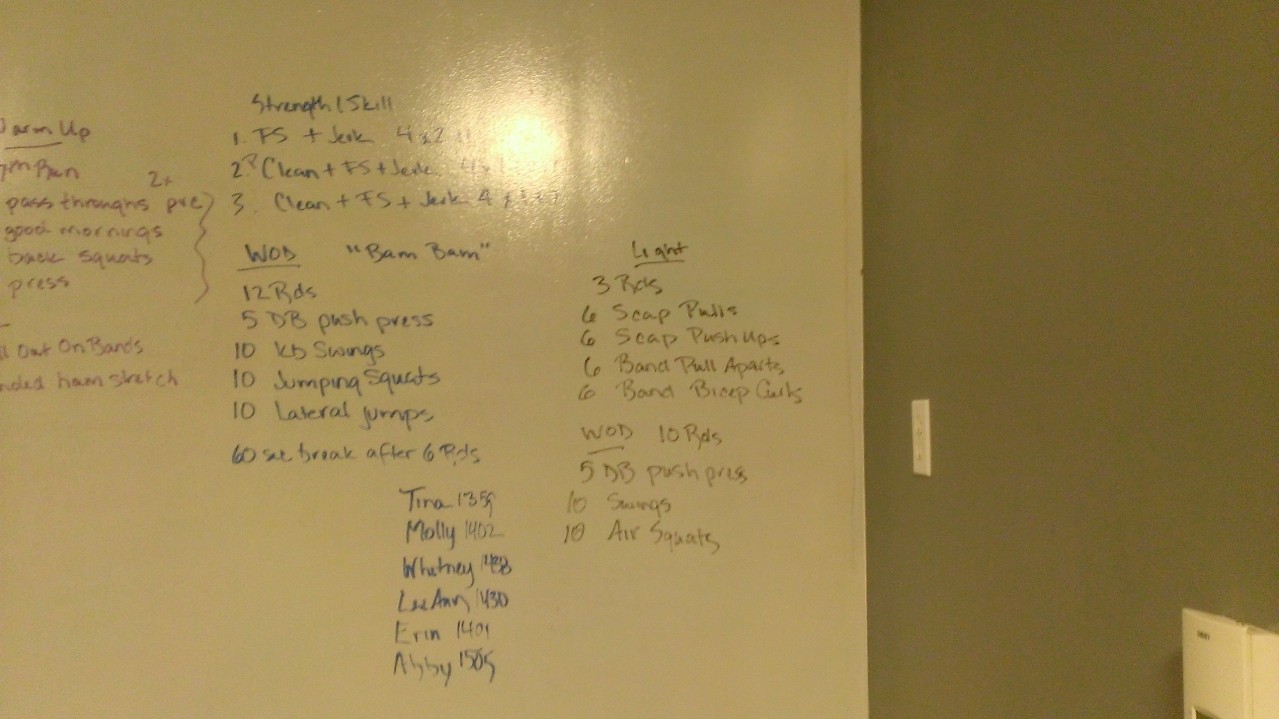 Warm Up
2x
pass throughs pvc
good mornings
back squats
press
Out On Bands
ham stretch
Strength / Skill
1. FS + Jerk 4x2
2. Clean + FS + Jerk
3. Clean + FS + Jerk 4
WOD "Bam Bam"
12 Rds
5 DB push press
10 Kb Swings
10 Jumping Squats
10 Lateral jumps
60 sec break after 6 Rds
Tina 1359
Molly 1402
Whitney
LeeAnn 1430
Erin 1401
Abby 1505
Light
3 Rds
6 Scap Pulls
6 Scap Push Ups
6 Band Pull Aparts
6 Band Bicep Curls
WOD 10 Rds
5 DB push press
10 Swings
10 Air Squats